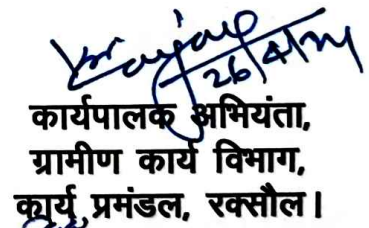 26/4/24
कार्यपालक अभियंता,
ग्रामीण कार्य विभाग,
कार्य प्रमंडल, रक्सौल।